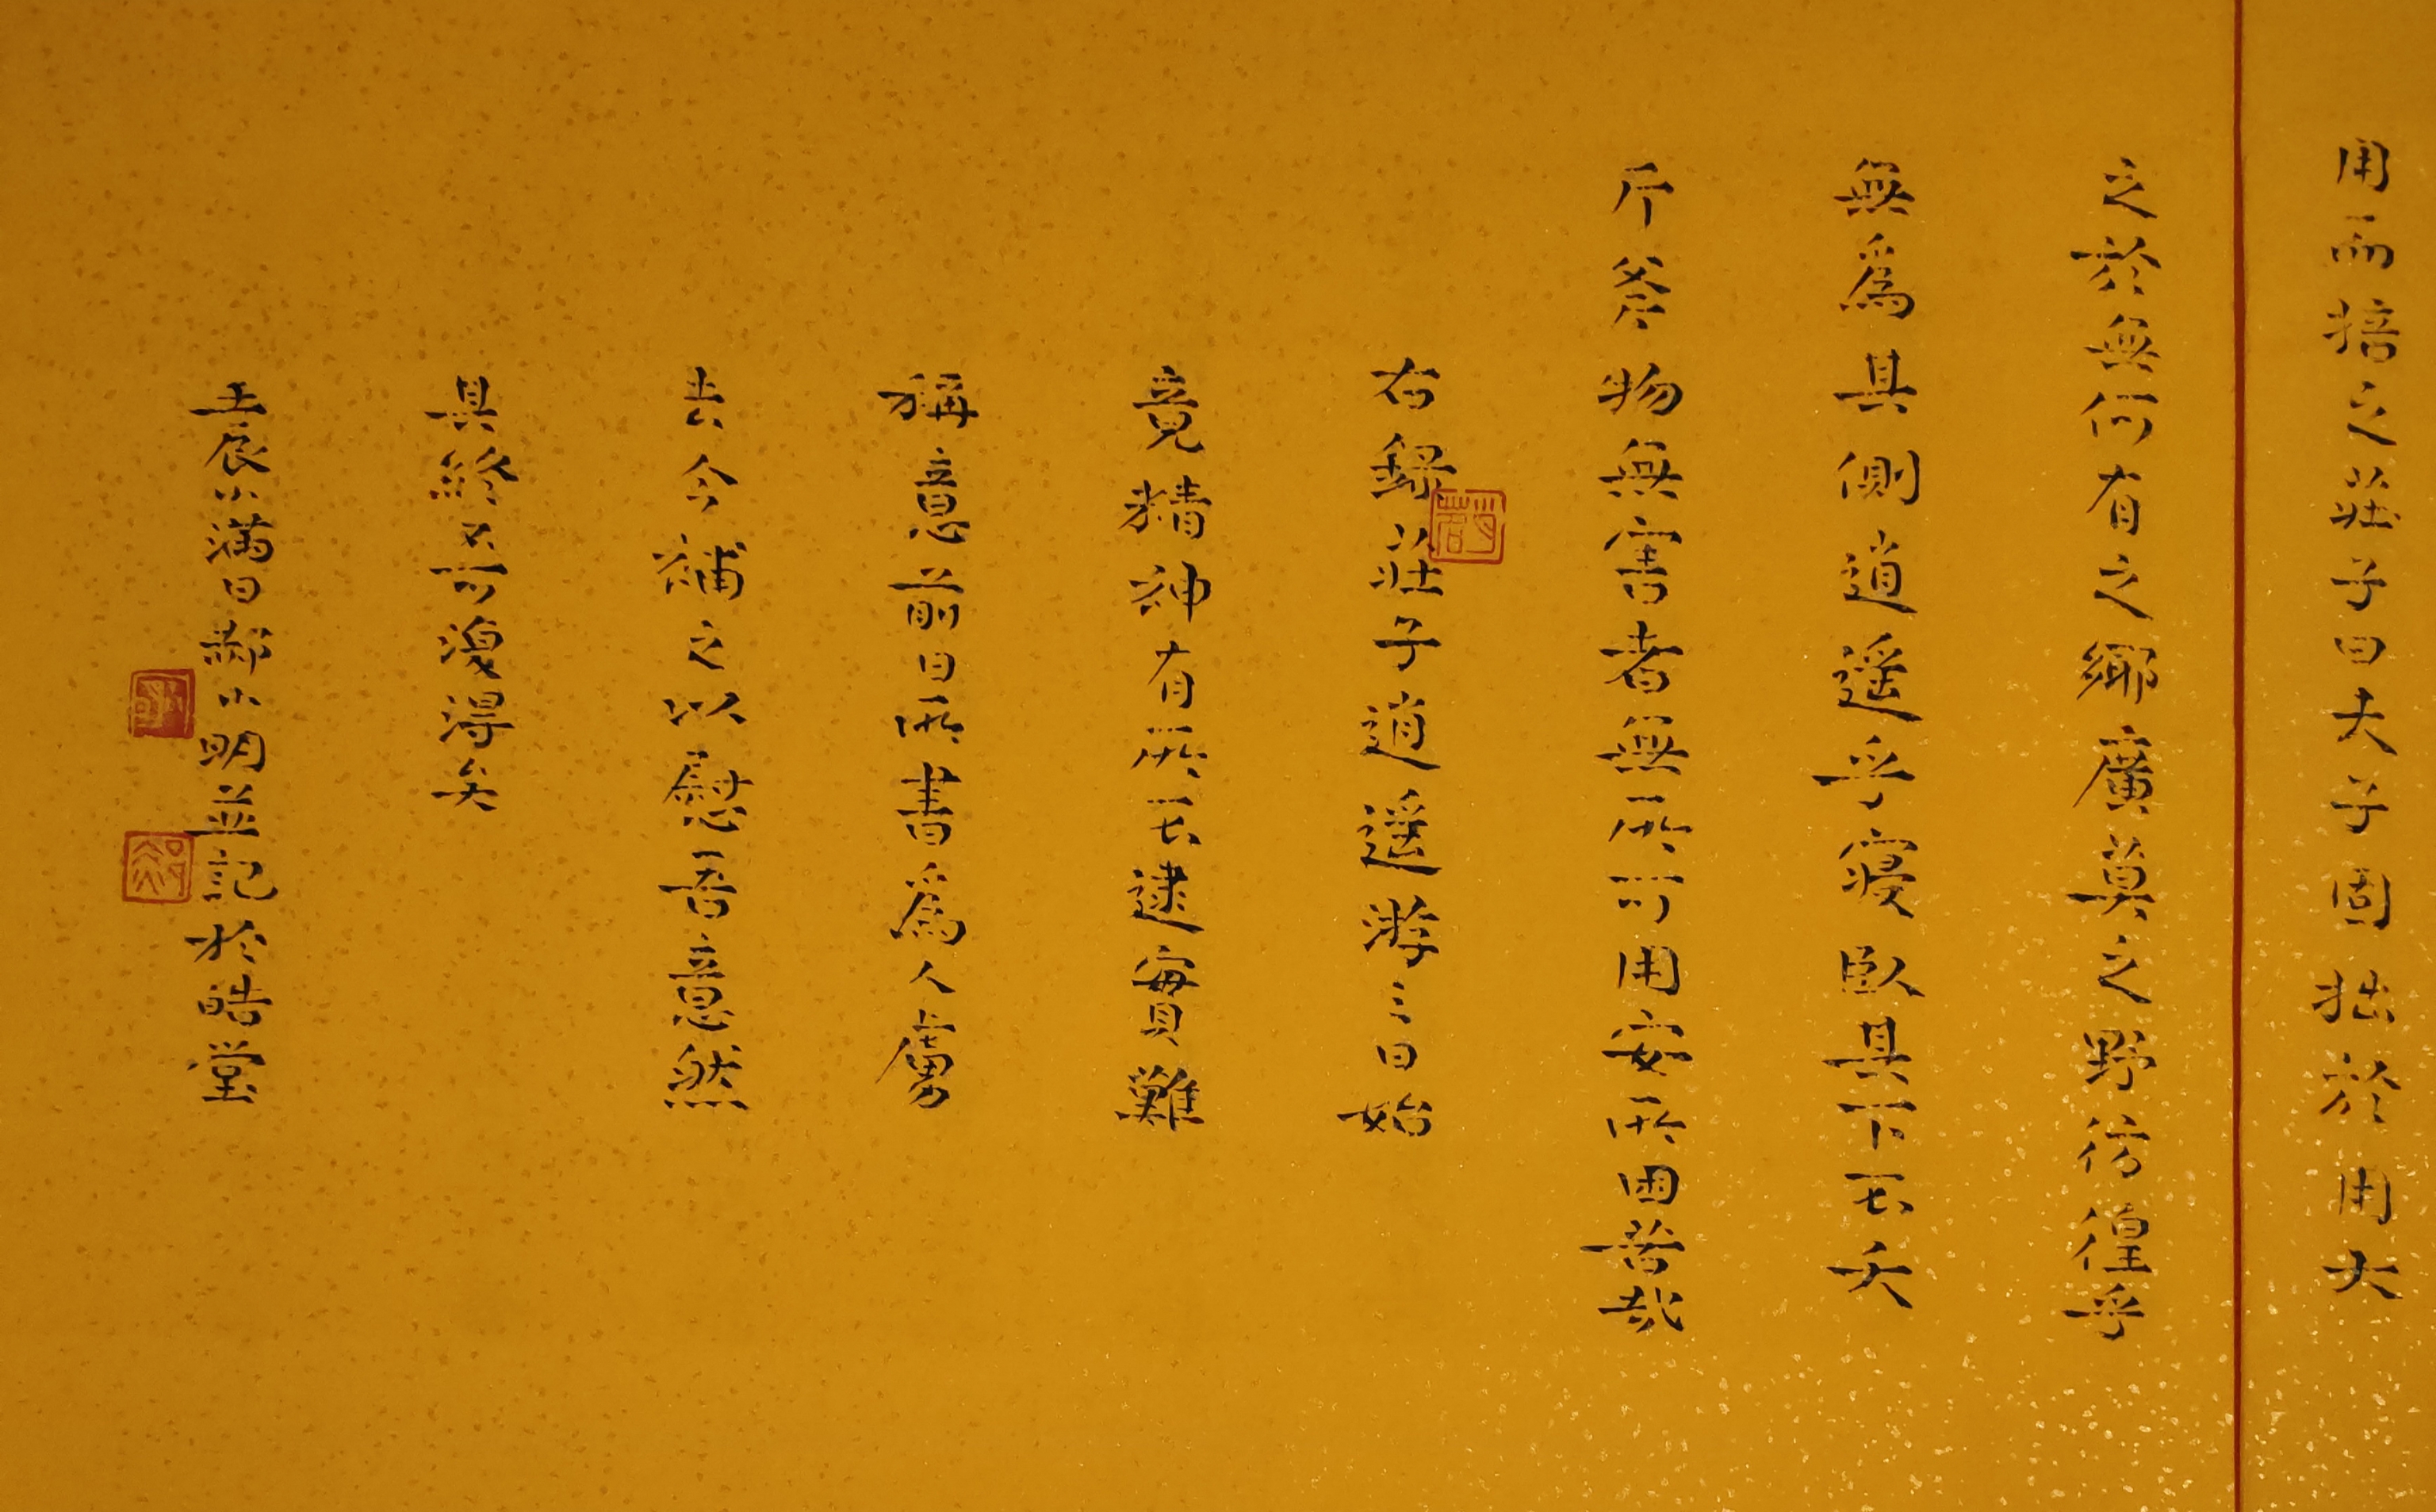 用而掊之莊子曰夫子固拙於用大
之於無何有之鄉廣莫之野彷徨乎
無爲其側逍遙乎寢臥其下不夭
斤斧物無害者無所可用安所困苦哉
右錄莊子逍遙游三日始
竟精神有所不逮實難
稱意前日所書爲人攜
去今補之以慰吾意然
其終不可復得矣
壬辰小滿日鄭小明並記於皓堂